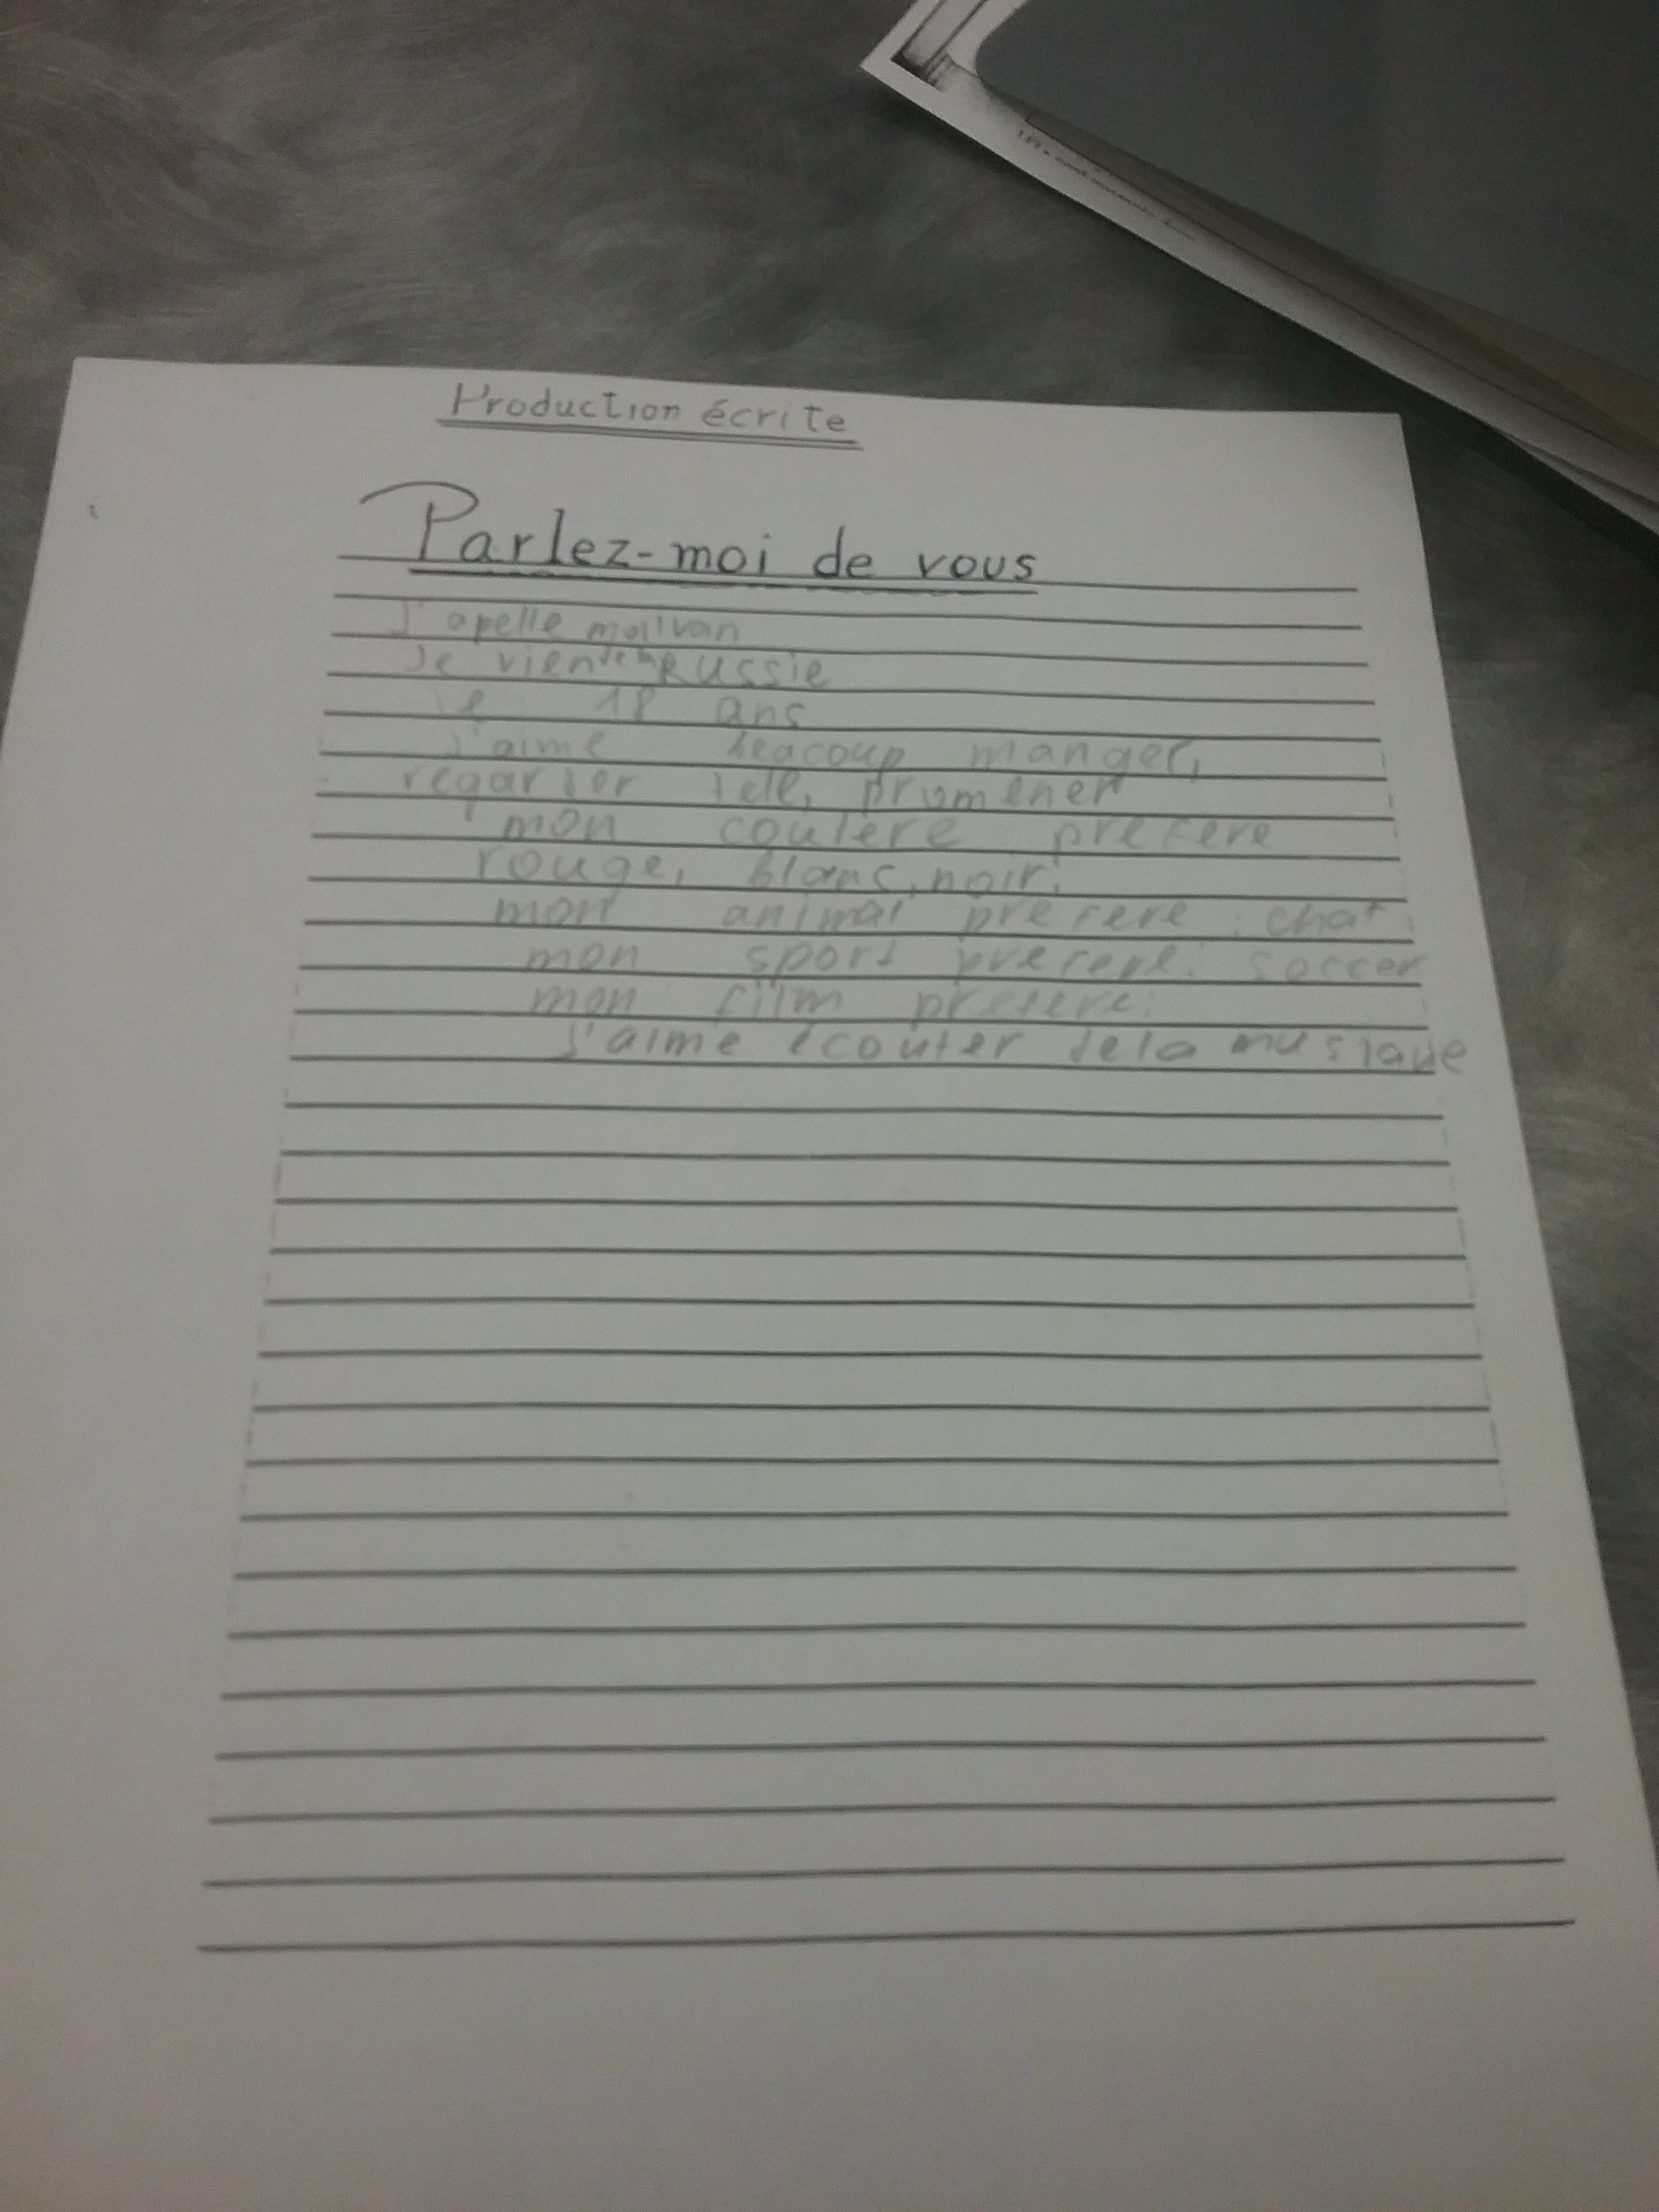 Production écrite
Parlez-moi de vous
J'apelle moi Ivan
Je vien de la Russie
18 ans
J'aime beacoup manger,
regarder tele, promener
mon coulere prefere
rouge, blanc, noir.
mon animal prefere : chat
mon sport prefere : soccer
mon film prefere:
J'aime écouter de la musique